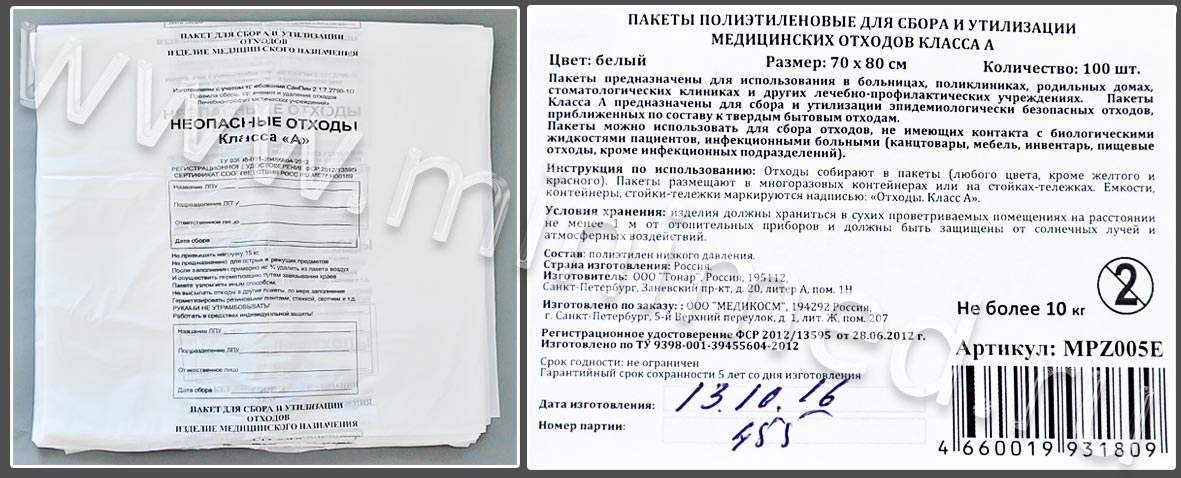 ПАКЕТ ДЛЯ СБОРА И УТИЛИЗАЦИИ
ОТХОДОВ
ИЗДЕЛИЕ МЕДИЦИНСКОГО НАЗНАЧЕНИЯ
Изготовлены с учетом требований СанПин 2.1.7.2790-10
Правила сбора, хранения и удаления отходов
Лечебно-профилактических учреждений)
НЕОПАСНЫЕ ОТХОДЫ
Класса «А»
ТУ 9398-001-39455604-2012
РЕГИСТРАЦИОННОЕ УДОСТОВЕРЕНИЕ ФСР 2012/13595
СЕРТИФИКАТ СООТВЕТСТВИЯ РОСС RU.МЕ77.Н00189
Название ЛПУ
Подразделение ЛПУ
Ответственное лицо
Дата сбора
Не превышать нагрузку 15 кг.
Не предназначено для острых и режущих предметов
После заполнения примерно на ¾ удалить из пакета воздух
И осуществить герметизацию путем завязывания краев
Пакета узлом или иным способом.
Не высыпать отходы в другие пакеты, по мере заполнения
Герметизировать резиновыми лентами, стяжкой, скотчем и т.д.
РУКАМИ НЕ УТРАМБОВЫВАТЬ!
Работать в средствах индивидуальной защиты!
Название ЛПУ
Подразделение ЛПУ
Ответственное лицо
Дата сбора
ПАКЕТ ДЛЯ СБОРА И УТИЛИЗАЦИИ
ОТХОДОВ
ИЗДЕЛИЕ МЕДИЦИНСКОГО НАЗНАЧЕНИЯ
ПАКЕТЫ ПОЛИЭТИЛЕНОВЫЕ ДЛЯ СБОРА И УТИЛИЗАЦИИ
МЕДИЦИНСКИХ ОТХОДОВ КЛАССА А
Цвет: белый Размер: 70 х 80 см Количество: 100 шт.
Пакеты предназначены для использования в больницах, поликлиниках, родильных домах,
стоматологических клиниках и других лечебно-профилактических учреждениях. Пакеты
Класса А предназначены для сбора и утилизации эпидемиологически безопасных отходов,
приближенных по составу к твердым бытовым отходам.
Пакеты можно использовать для сбора отходов, не имеющих контакта с биологическими
жидкостями пациентов, инфекционными больными (канцтовары, мебель, инвентарь, пищевые
отходы, кроме инфекционных подразделений).
Инструкция по использованию: Отходы собирают в пакеты (любого цвета, кроме желтого и
красного). Пакеты размещают в многоразовых контейнерах или на стойках-тележках. Емкости,
контейнеры, стойки-тележки маркируются надписью: «Отходы. Класс А».
Условия хранения: изделия должны храниться в сухих проветриваемых помещениях на расстоянии
не менее 1 м от отопительных приборов и должны быть защищены от солнечных лучей и
атмосферных воздействий.
Состав: полиэтилен низкого давления.
Страна изготовления: Россия.
Изготовитель: ООО "Тонар", Россия, 195112,
Санкт-Петербург, Заневский пр-кт, д. 20, литер А, пом. 1Н
Изготовлено по заказу: : ООО "МЕДИКОСМ", 194292 Россия,
г. Санкт-Петербург, 5-й Верхний переулок, д. 1, лит. Ж, пом. 207
Регистрационное удостоверение ФСР 2012/13595 от 28.06.2012 г.
Изготовлено по ТУ 9398-001-39455604-2012
Срок годности: не ограничен
Гарантийный срок сохранности 5 лет со дня изготовления
Дата изготовления: 13.10.16
Номер партии: 455
2
Не более 10 кг
Артикул: MPZ005E
4 660019 931809